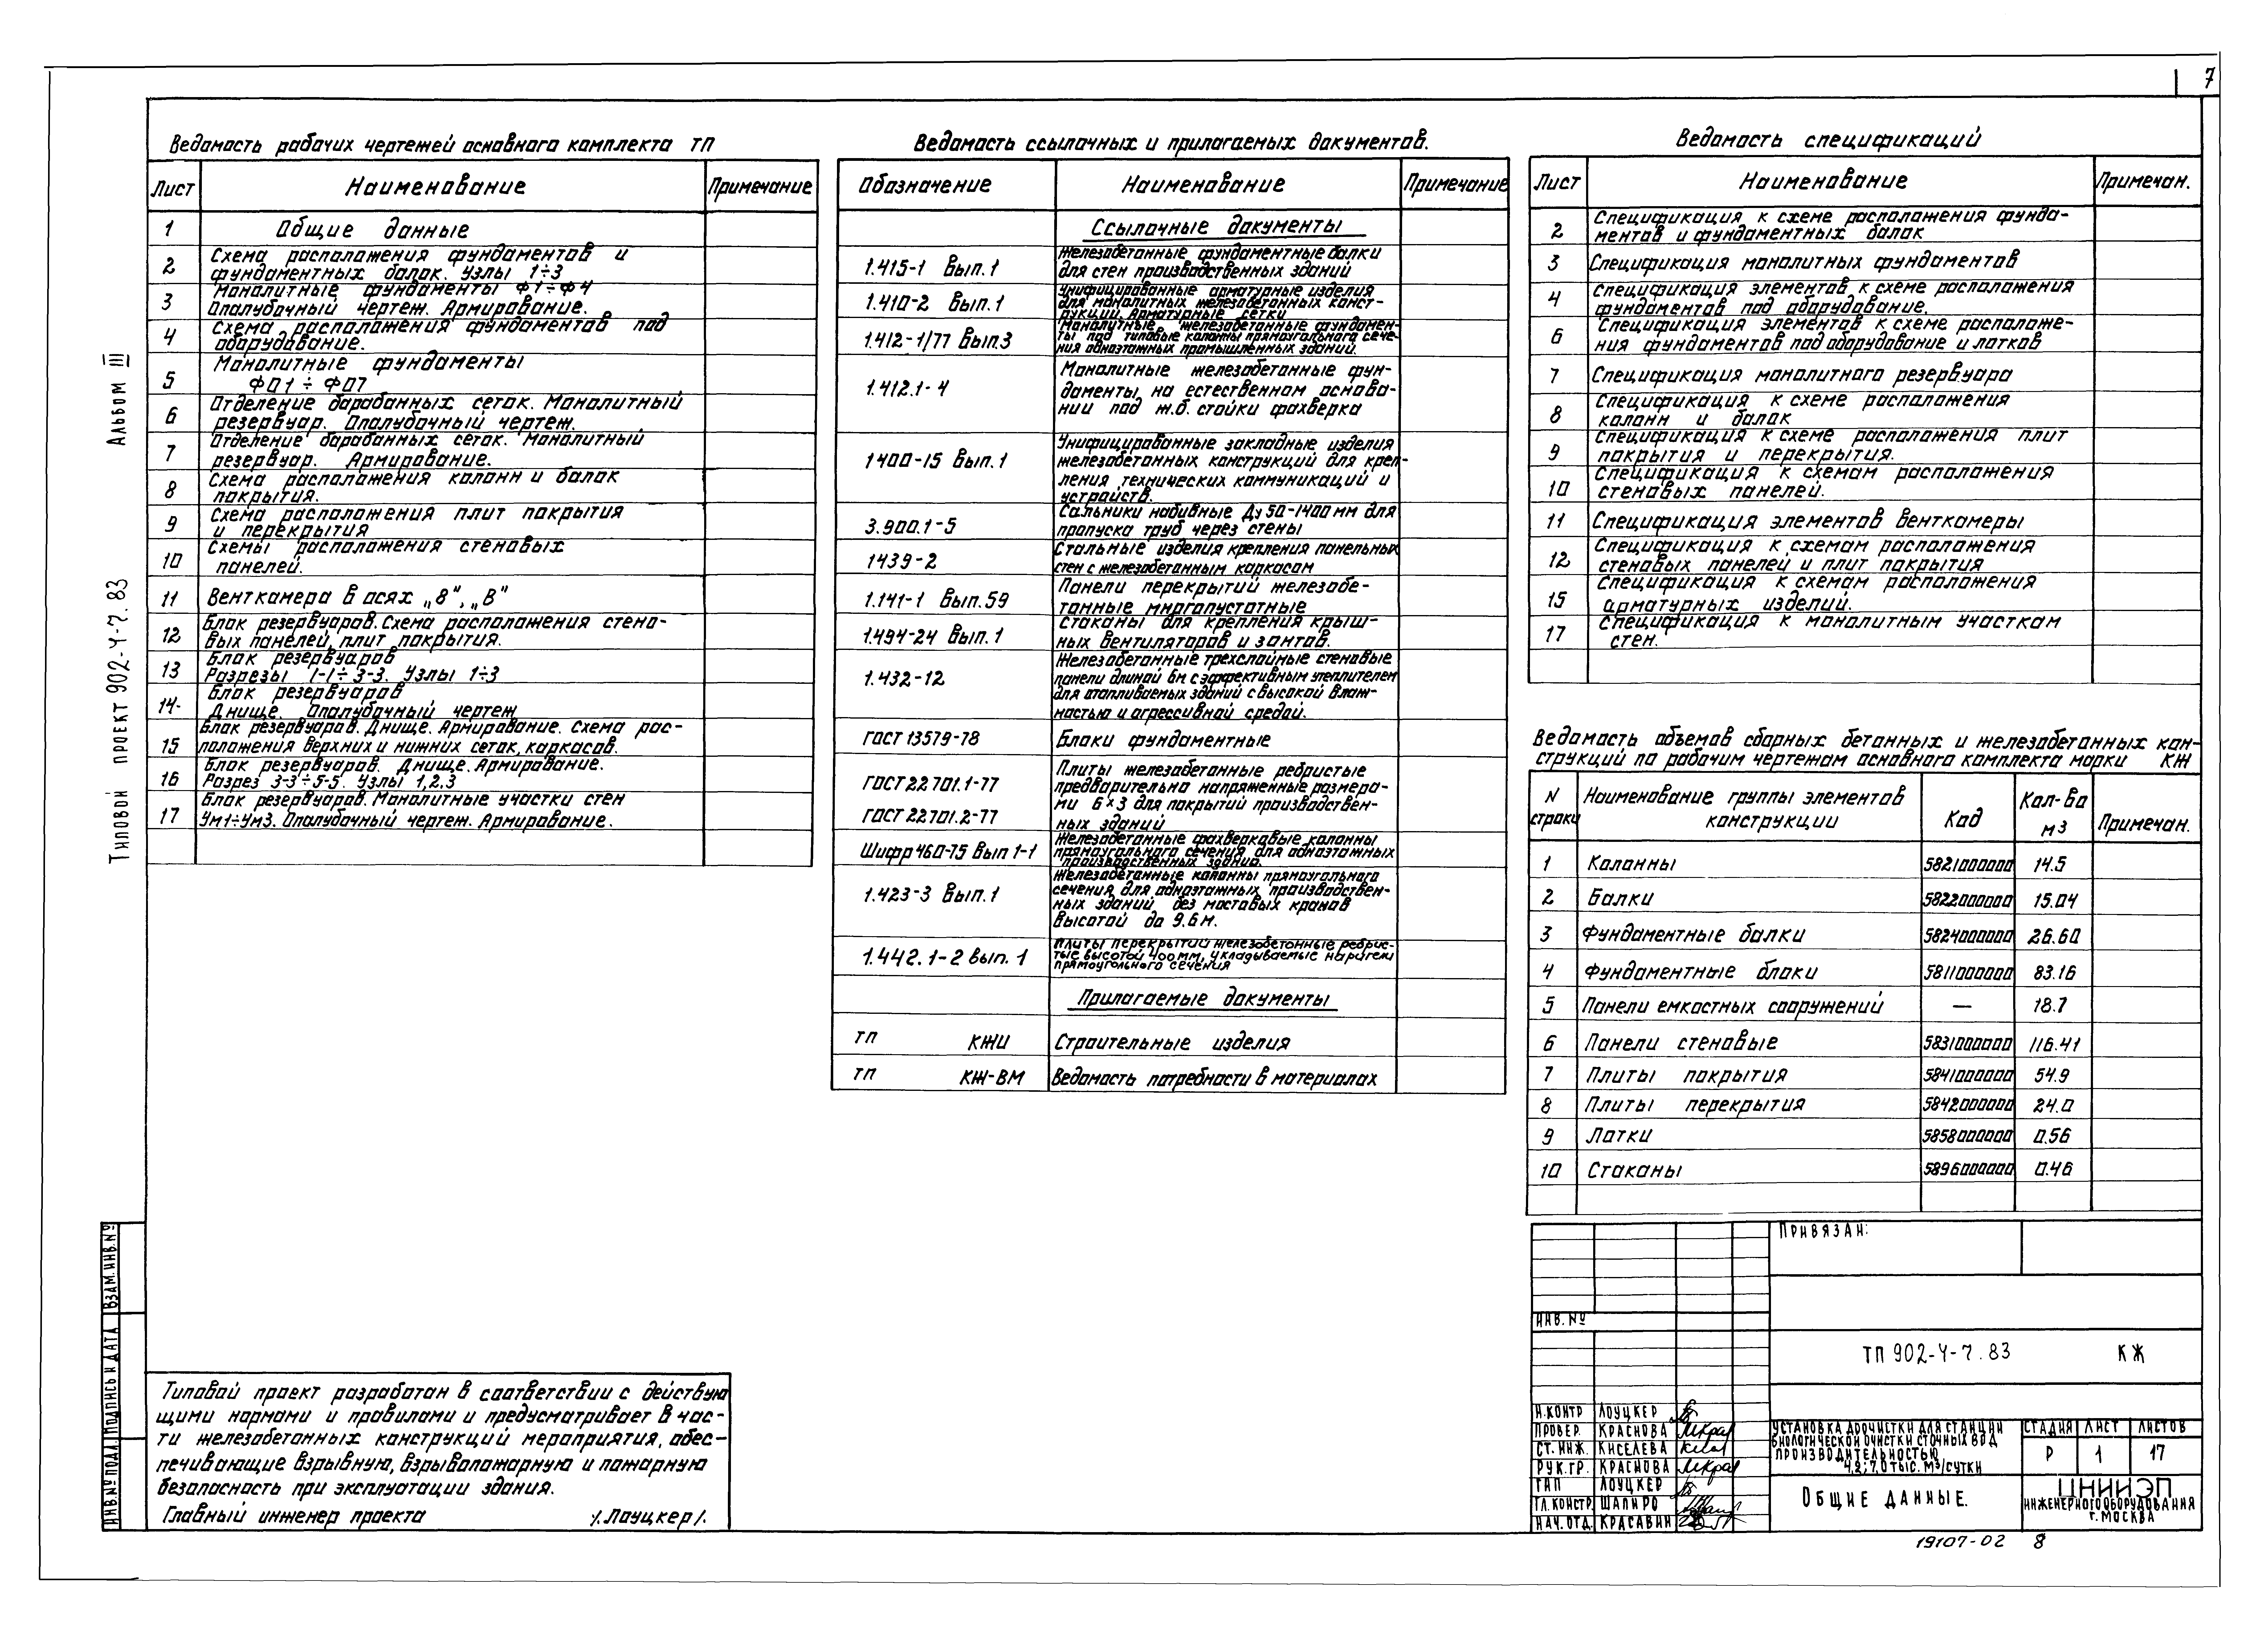 7
Альбом III
Типовой проект 902-4-7.83
Ведомость рабочих чертежей основного комплекта ТП
Лист Наименование Примечание
1 Общие данные
2 Схема расположения фундаментов и
фундаментных балок. Узлы 1÷3
3 Монолитные фундаменты Ф1÷Ф4
Опалубочный чертеж. Армирование.
4 Схема расположения фундаментов под
оборудование.
5 Монолитные фундаменты
ФО1÷ФО7
6 Отделение барабанных сеток. Монолитный
резервуар. Опалубочный чертеж.
7 Отделение барабанных сеток. Монолитный
резервуар. Армирование.
8 Схема расположения колонн и балок
покрытия.
9 Схема расположения плит покрытия
и перекрытия
10 Схемы расположения стеновых
панелей.
11 Венткамера в осях „8“, „В“
12 Блок резервуаров. Схема расположения стено-
вых панелей, плит покрытия.
13 Блок резервуаров
Разрезы 1-1÷3-3. Узлы 1÷3
14. Блок резервуаров
Днище. Опалубочный чертеж
15 Блок резервуаров. Днище. Армирование. Схема рас-
положения верхних и нижних сеток, каркасов.
16 Блок резервуаров. Днище. Армирование.
Разрез 3-3÷5-5. Узлы 1,2,3
17 Блок резервуаров. Монолитные участки стен
Ум1÷Ум3. Опалубочный чертеж. Армирование.
Ведомость ссылочных и прилагаемых документов.
Обозначение Наименование Примечание
Ссылочные документы
1.415-1 Вып.1 Железобетонные фундаментные балки
для стен производственных зданий
1.410-2 Вып.1 Унифицированные арматурные изделия
для монолитных железобетонных конст-
рукций. Арматурные сетки
1.412-1/77 Вып.3 Монолитные железобетонные фундамен-
ты под типовые колонны прямоугольного сече-
ния одноэтажных промышленных зданий.
1.412.1-4 Монолитные железобетонные фун-
даменты на естественном основа-
нии под ж.б. стойки фахверка
1400-15 Вып.1 Унифицированные закладные изделия
железобетонных конструкций для креп-
ления технических коммуникаций и
устройств.
3.900.1-5 Сальники набивные Ду 50-1400 мм для
пропуска труб через стены
1439-2 Стальные изделия крепления панельных
стен с железобетонным каркасом
1.141-1 Вып.59 Панели перекрытий железобе-
тонные многопустотные
1.494-24 Вып.1 Стаканы для крепления крыш-
ных вентиляторов и зонтов.
1.432-12 Железобетонные трехслойные стеновые
панели длиной 6м с эффективным утеплителем
для отапливаемых зданий с высокой влаж-
ностью и агрессивной средой.
ГОСТ 13579-78 Блоки фундаментные
ГОСТ 22701.1-77
ГОСТ 22701.2-77
Плиты железобетонные ребристые
предварительно напряженные размера-
ми 6×3 для покрытий производствен-
ных зданий
Шифр 460-75 Вып 1-1 Железобетонные фахверковые колонны
прямоугольного сечения для одноэтажных
производственных зданий.
1.423-3 Вып.1 Железобетонные колонны прямоугольного
сечения для одноэтажных производствен-
ных зданий без мостовых кранов
высотой до 9.6м.
1.442.1-2 вып.1 Плиты перекрытий железобетонные ребрис-
тые высотой 400мм, укладываемые на ригели
прямоугольного сечения
Прилагаемые документы
ТП КЖИ Строительные изделия
ТП КЖ-ВМ Ведомость потребности в материалах
Ведомость спецификаций
Лист Наименование Примечан.
2 Спецификация к схеме расположения фунда-
ментов и фундаментных балок
3 Спецификация монолитных фундаментов
4 Спецификация элементов к схеме расположения
фундаментов под оборудование.
6 Спецификация элементов к схеме расположе-
ния фундаментов под оборудование и лотков
7 Спецификация монолитного резервуара
8 Спецификация к схеме расположения
колонн и балок
9 Спецификация к схеме расположения плит
покрытия и перекрытия.
10 Спецификация к схемам расположения
стеновых панелей.
11 Спецификация элементов венткамеры
12 Спецификация к схемам расположения
стеновых панелей и плит покрытия
15 Спецификация к схемам расположения
арматурных изделий.
17 Спецификация к монолитным участкам
стен.
Ведомость объемов сборных бетонных и железобетонных кон-
струкций по рабочим чертежам основного комплекта марки КЖ
N строки Наименование группы элементов конструкции Код Кол-во м3 Примечан.
1 Колонны 5821000000 14.5
2 Балки 5822000000 15.04
3 Фундаментные балки 5824000000 26.60
4 Фундаментные блоки 5811000000 83.16
5 Панели емкостных сооружений — 18.7
6 Панели стеновые 5831000000 116.41
7 Плиты покрытия 5841000000 54.9
8 Плиты перекрытия 5842000000 24.0
9 Лотки 5858000000 0.56
10 Стаканы 5896000000 0.46
Типовой проект разработан в соответствии с действую
щими нормами и правилами и предусматривает в час-
ти железобетонных конструкций мероприятия, обес-
печивающие взрывную, взрывопожарную и пожарную
безопасность при эксплуатации здания.
Главный инженер проекта /.Лоуцкер/.
Инв.№ подл. Подпись и дата Взам.инв.№
Привязан:
Инв.№
ТП 902-4-7.83 КЖ
Н.контр Лоуцкер
Провер. Краснова
Ст.инж. Киселева
Рук.гр. Краснова
ГИП Лоуцкер
Гл.констр. Шапиро
Нач.отд. Красавин
Установка доочистки для станции
биологической очистки сточных вод
производительностью
4,2; 7,0 тыс. м3/сутки
Стадия Лист Листов
Р 1 17
Общие данные.
ЦНИИЭП
инженерного оборудования
г. Москва
19107-02 8